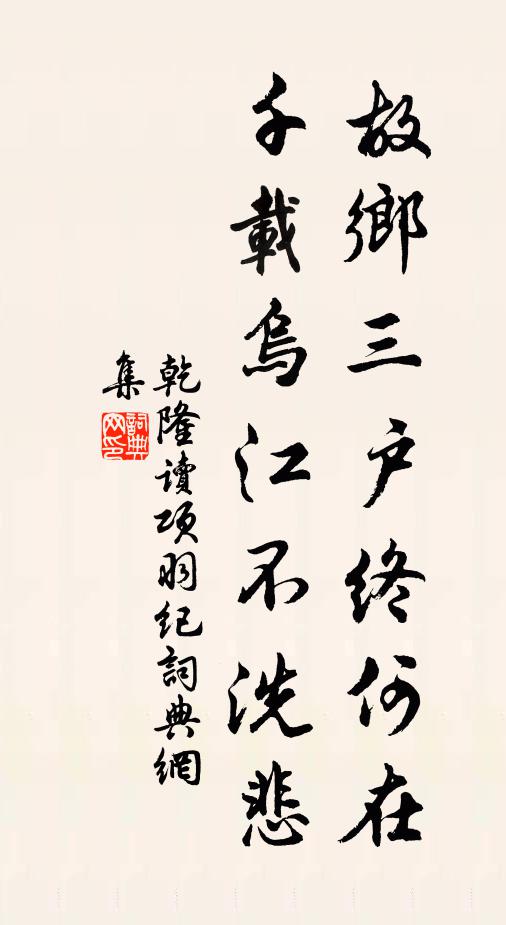 故鄉三户終何在
千載烏江不洗悲
乾隆讀項羽紀詞典網
集
詞典
网印